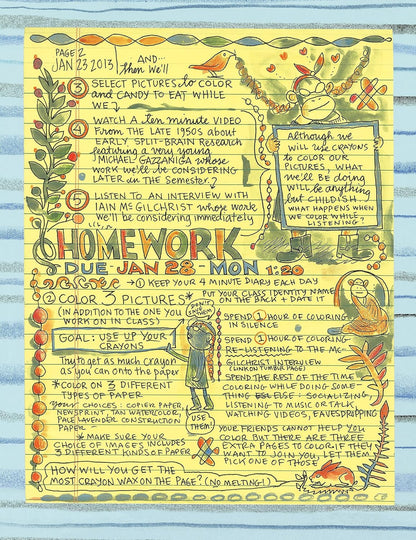 PAGE 2
JAN 23 2013
AND...
then We'll
③ SELECT PICTURES to COLOR
and CANDY TO EAT WHILE
WE
④ WATCH A ten minute VIDEO
FROM THE LATE 1950s about
EARLY SPLIT-BRAIN RESEARCH
featuring a very young
MICHAEL GAZZANIGA whose
work we'll be CONSIDERING
LATER in the Semester.
⑤ LISTEN TO AN INTERVIEW WITH
IAIN McGILCHRIST whose work
we'll be considering immediately
Although we
will use CRAYONS
to COLOR OUR
PICTURES, WHAT
we'll BE doing
WILL BE anything
but CHILDISH.
WHAT HAPPENS WHEN
WE COLOR WHILE
LISTENING
HOMEWORK
DUE-JAN 28-MON 1:20
→① KEEP YOUR 4 MINUTE DIARY EACH DAY
② COLOR 3 PICTURES*
(IN ADDITION TO THE ONE YOU
WORK ON IN CLASS)
GOAL: USE UP YOUR
CRAYONS
Try to get as much crayon
as you can onto the paper
*COLOR ON 3 DIFFERENT
TYPES OF PAPER
Your CHOICES: COPIER PAPER,
NEWSPRINT, TAN WATERCOLOR,
PALE LAVENDER CONSTRUCTION
PAPER
*MAKE SURE YOUR
CHOICE OF IMAGES INCLUDES
3 DIFFERENT KINDS OF PAPER
USE
THEM!
PUT YOUR CLASS IDENTITY NAME
ON THE BACK + DATE IT
SPEND 1 HOUR OF COLORING
IN SILENCE
SPEND 1 HOUR OF COLORING
RE-LISTENING TO THE Mc-
GILCHRIST INTERVIEW
(LINK ON TUMBLR PAGE)
SPEND THE REST OF THE TIME
COLORING WHILE DOING SOME-
THING ELSE: SOCIALIZING,
LISTENING TO MUSIC OR TALK,
WATCHING VIDEOS, EAVESDROPPING
YOUR FRIENDS CANNOT HELP YOU
COLOR BUT THERE ARE THREE
EXTRA PAGES TO COLOR IF THEY
WANT TO JOIN YOU, LET THEM
PICK ONE OF THOSE
HOW WILL YOU GET THE
MOST CRAYON WAX ON THE PAGE? (NO MELTING!)